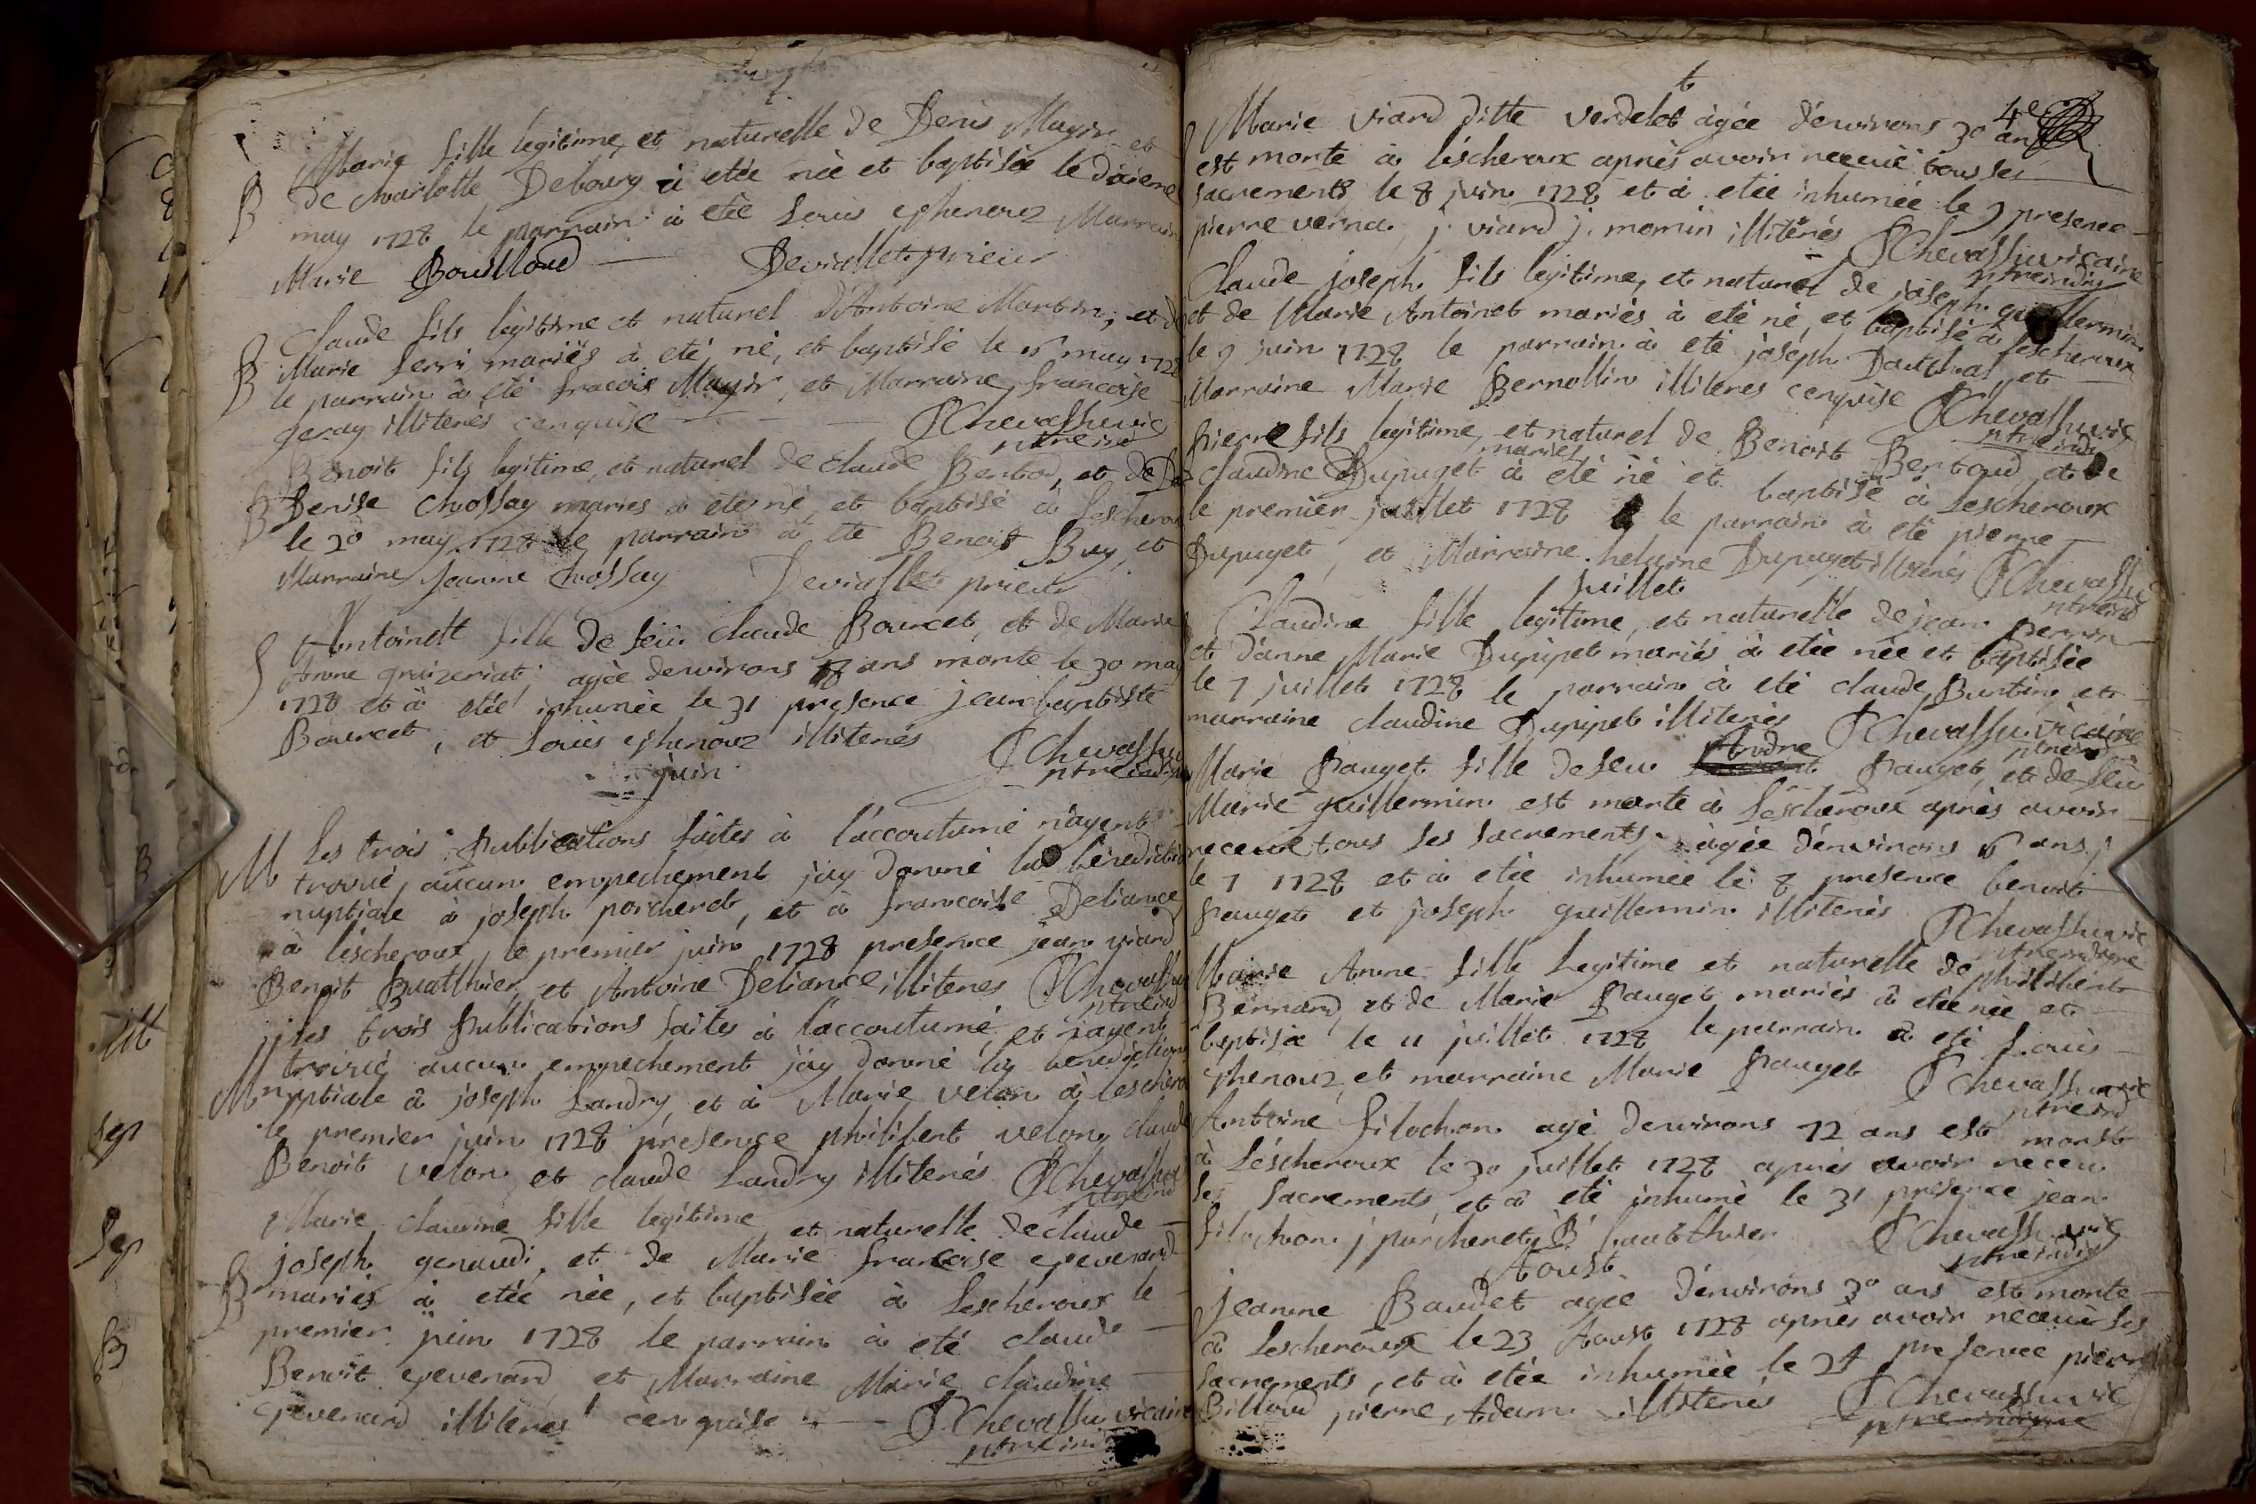 Marie fille legitime, et naturelle de Denis Mayir et
B de charlotte Debourg à etée née et baptisée le dixieme
may 1728 le parrain à etée Louis ephenouz Marraine
Marie Bouilloud — Deviallet prieur
Claude fils légitime et naturel d'Antoine Martin, et de
B Marie ferri mariés à eté né, et baptisé le 15 may 1728
le parrain à été fracois Mayir, et Marraine francoise
geray illiterés enquise — P Chevassu vic
ptre ind
Benoit fils legitime, et naturel de claude Bentod, et de
B Denise chossay mariés à eté né, et baptisé à Lescheroux
le 20 may 1728 le parrain à ete Benoit Buy, et
Marraine Jeanne chossay Deviallet prieur
Antoinett fille de feü claude Bourcet, et de Marie
S Anne graizeriat agée denvirons 18 ans morte le 30 may
1728 et à etée inhumée le 31 presence jean baptiste
Bourcet, et Louis ephenouz illiterés P Chevassu
ptre indi
juin
M les trois publications faites à l'accoutumé n'ayent
trouvé aucun empechement j'ay donné la bénédiction
nuptiale à joseph porcheret, et à francoise Deliance
à lescheroux, le premier juin 1728 presence jean viard
Benoit Buatthier, et Antoine Deliance illiterés P Chevassu
ptre ind
les trois publications faites à l'accoutumé, et n'ayent
trouvé aucun empechement j'ay donné la bénédiction
M nuptiale à joseph Landry, et à Marie velon à leschero
le premier juin 1728 presence philibert velon, claude
Benoit velon, et claude Landry illiterés P Chevassu
ptre ind
Marie claudine fille legitime et naturelle de claude —
joseph genaudi, et de Marie francoise epevenard
B mariés à etée née, et baptisée à Lescheroux le —
premier juin 1728 le parrain à eté claude —
Benoit epevenard et Marraine Marie claudine —
epevenard illiterés enquise — P Chevassu vicaire
ptre ind
4e
Marie viard ditte verdelet agée d'environs 30 ans
est morte à lescheroux apres avoir receüe tous ses
sacrements le 8 juin 1728 et à etée inhumée le 9 presence —
pierre verna, j. viard j. momin illiterés P Chevassu vicaire
ptre indig
Claude joseph fils legitime, et naturel de joseph guillermin
et de Marie Antoinet mariés à eté né, et baptisé à Lescheroux
le 9 juin 1728 le parrain à eté joseph Dauthal, et
Marraine Marie Bernollin illiteres enquise P Chevassu vic
ptre ind
Pierre fils legitime, et naturel de Benoit Bertoud et de
mariés
claudine Dupuget à eté né et baptisé à Lescheroux
le premier juillet 1728 le parrain à eté pierre —
Dupuget, et Marraine helaine Dupuget illiterés P Chevassu
ptre ind
Juillet
Claudine fille legitime, et naturelle de jean perrin
et d'anne Marie Dupupet mariés à etée née et baptisée
le 7 juillet 1728 le parrain à eté claude Burtin, et
marraine claudine Dupupet illiterés P Chevassu vicaire
ptre ind
Andre
Marie pauget fille de feu pauget, et de feu
Marie guillermin est morte à Lescheroux apres avoir
receue tous ses sacrements agée d'environs 16 ans,
le 7 1728 et à etée inhumée le 8 presence benoit —
pauget et joseph guillermin illiterés P Chevassu vic
ptre indigne
Marie Anne fille legitime et naturelle de philibert
Bernard, et de Marie pauget mariés à etée née et —
baptisée le 11 juillet 1728 le parrain à eté Louis —
ephenouz, et marraine Marie pauget P Chevassu vic
ptre ind
Antoine filochon agé denvirons 72 ans est mort
à Léscheroux le 30 juillet 1728 apres avoir receu
ses sacrements, et à eté inhumé le 31 presence jean
filochon j porcheret, B buatthier P Chevassu vic
ptre indig
Aoust
Jeanne Baudet agée d'environs 30 ans est morte —
à Lescheroux le 23 Aoust 1728 apres avoir receue ses
sacrements, et à etée inhumée le 24 presence pierre
Billoud pierre Adam illiterés P Chevassu vic
ptre indigne